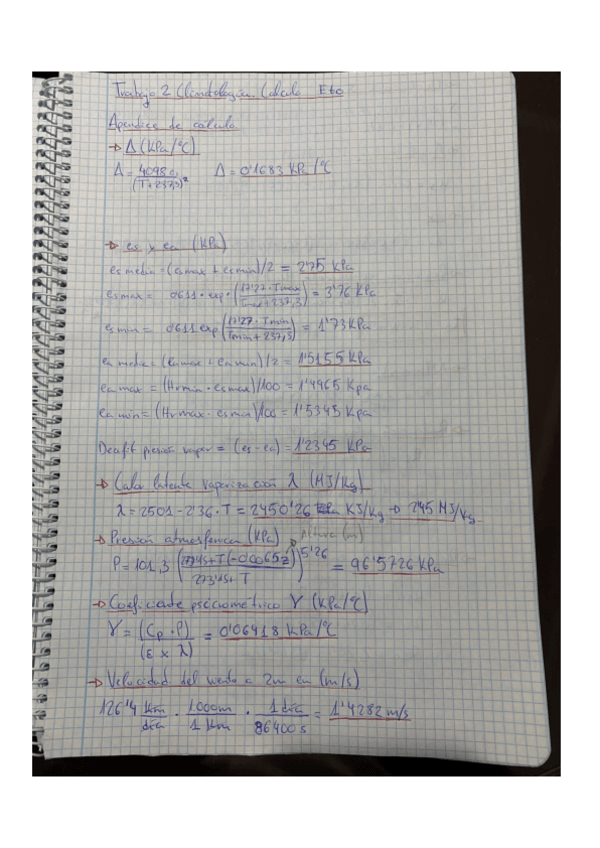 Trabajo 2 Climatología Calculo Eto
Apendice de cálculo
→ Δ (KPa/ºC)
Δ = 4098 es / (T+237,3)² Δ = 0'1683 KPa/ºC
→ es y ea (KPa)
es media = (esmax + esmin)/2 = 2'75 KPa
esmax = 0611 · exp · (17'27 · Tmax / Tmax + 237,3) = 3'76 KPa
esmin = 0611 exp (17'27 · Tmin / Tmin + 237,3) = 1'73 KPa
ea media = (eamax + eamin)/2 = 1'5155 KPa
ea max = (Hrmin · esmax)/100 = 1'4965 Kpa
ea min = (Hrmax · esmin)/100 = 1'5345 KPa
Deficit presión vapor = (es - ea) = 1'2345 KPa
→ Calor latente vaporización λ (MJ/Kg)
λ = 2501 - 2'36 · T = 2450'26 KJ/Kg → 2'45 MJ/Kg
→ Presión atmosferica (KPa) Altura (m)
P = 101,3 (273'45+T(-0'0065z) / 273'45+T)^5'26 = 96'5726 KPa
→ Coeficiente psicrométrico γ (KPa/ºC)
γ = (Cp · P) / (ε x λ) = 0'06418 KPa/ºC
→ Velocidad del viento a 2m en (m/s)
126'4 Km/dia · 1000m/1 Km · 1 dia/86400 s = 1'4282 m/s